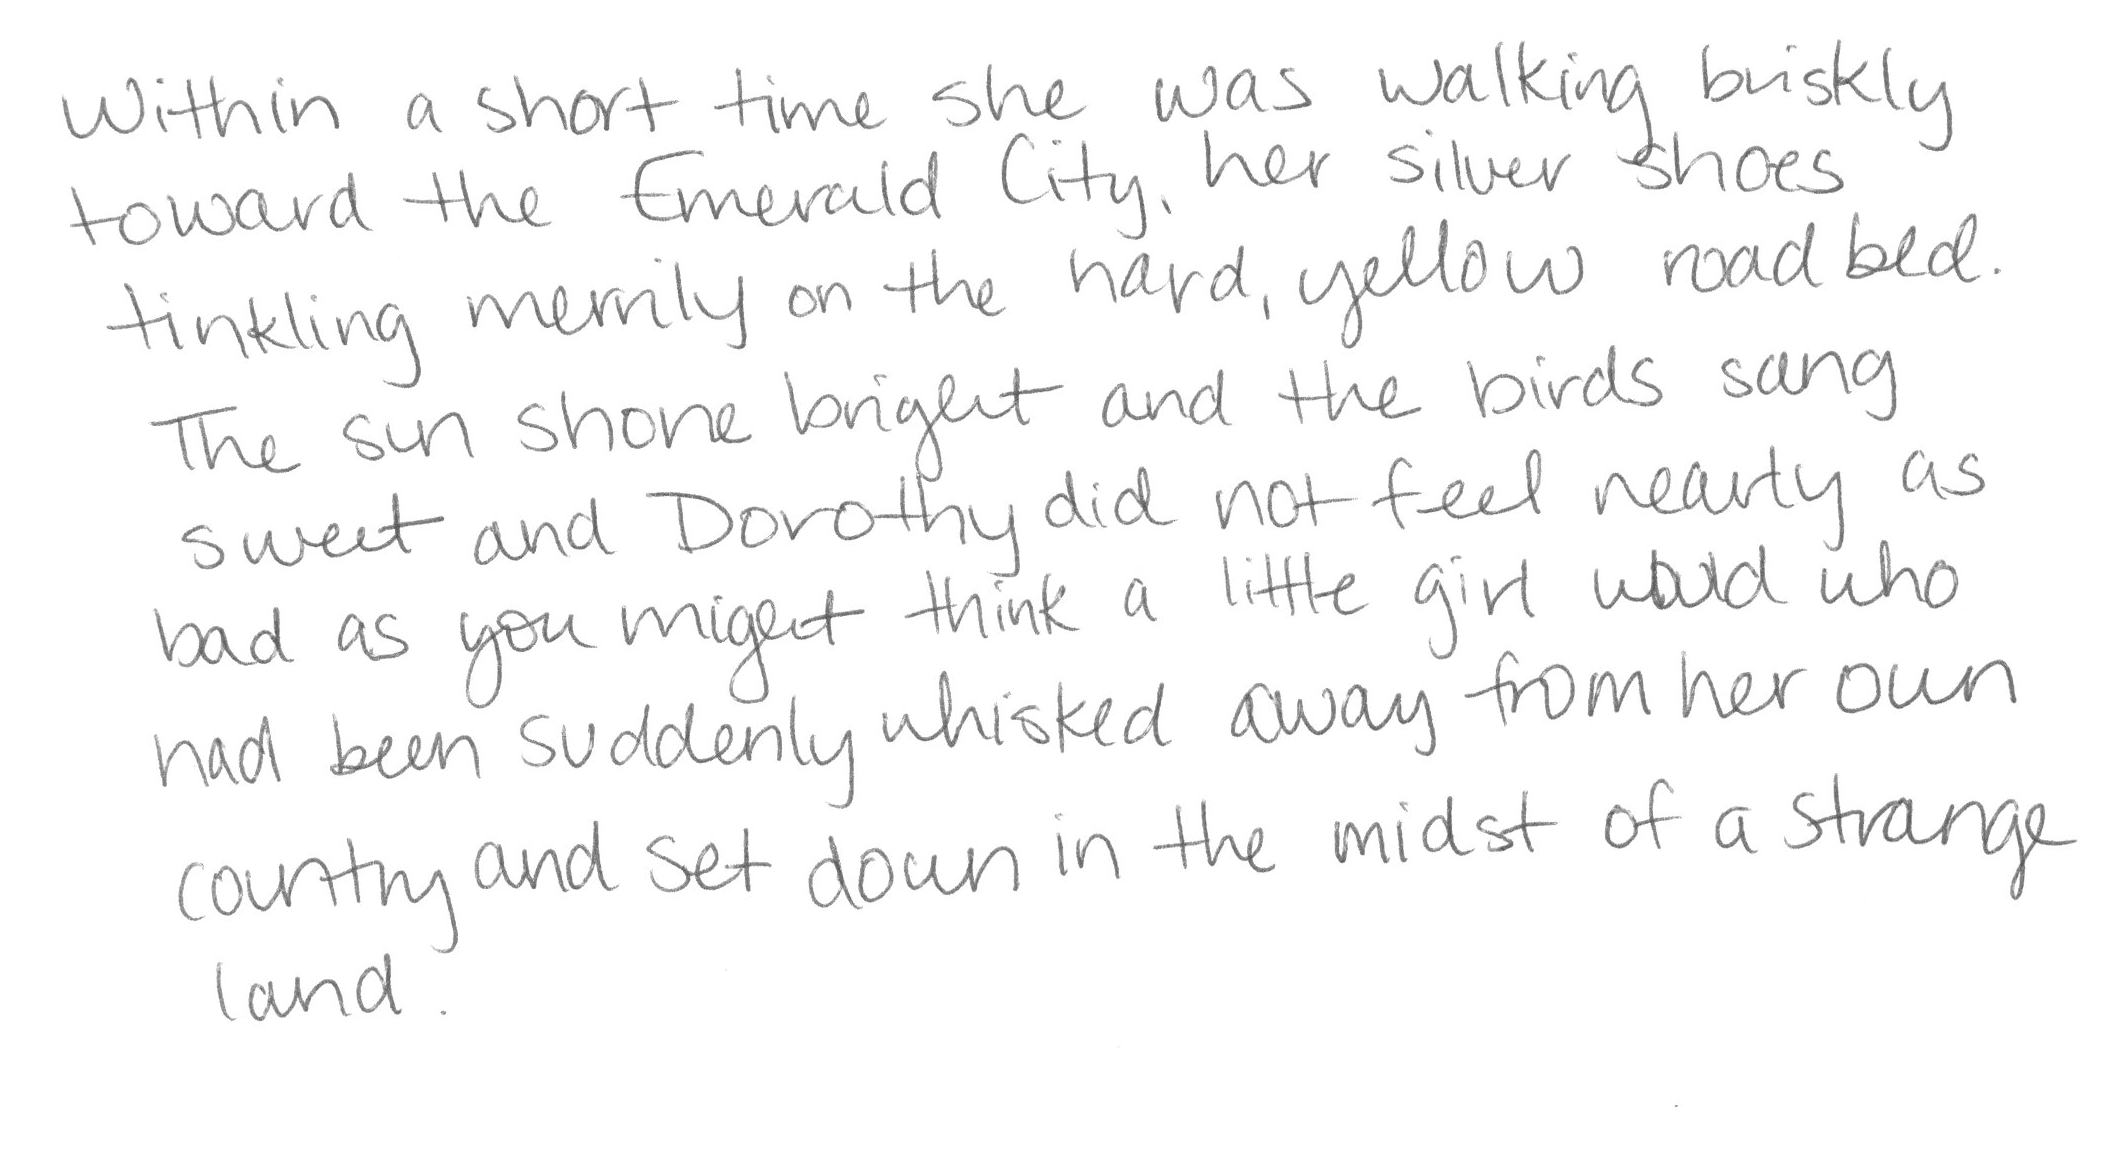 Within a short time she was walking briskly
toward the Emerald City, her silver shoes
tinkling merrily on the hard, yellow road bed.
The sun shone bright and the birds sang
sweet and Dorothy did not feel nearly as
bad as you might think a little girl would who
had been suddenly whisked away from her own
country and set down in the midst of a strange
land.